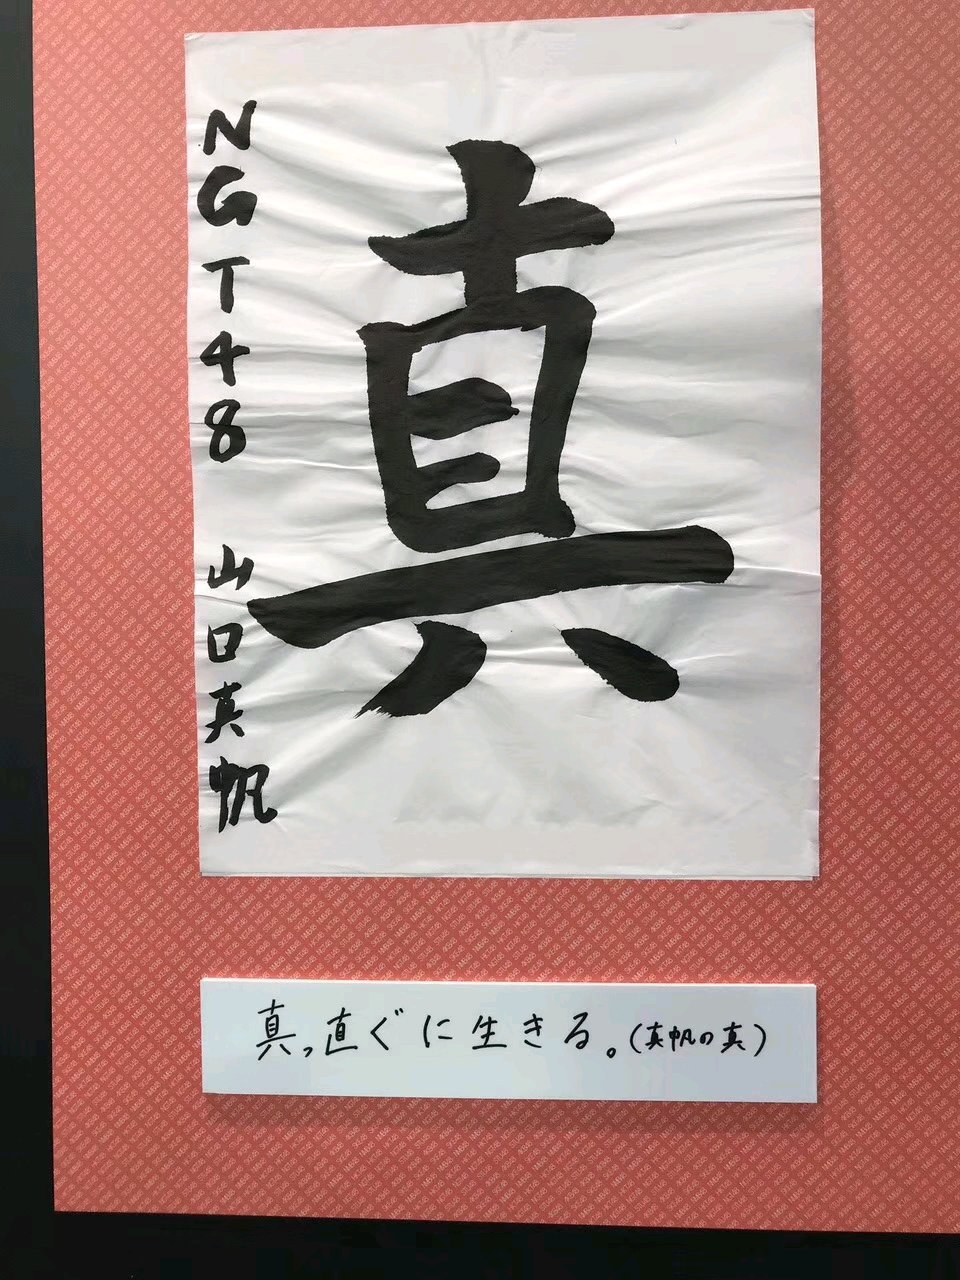 真
NGT48 山口真帆
真っ直ぐに生きる。(真帆の真)